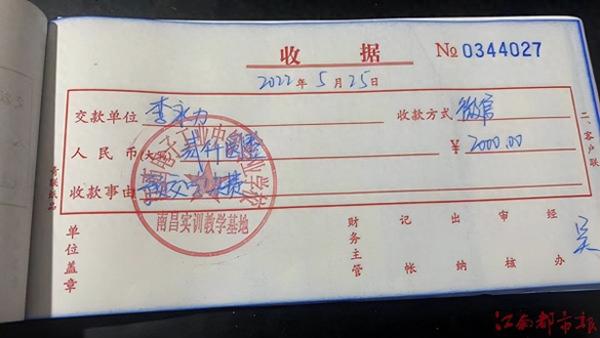 收 据 № 0344027
2022 年 5 月 25 日
交款单位 李永力 收款方式 微信
人民币(大写) 贰仟圆整 ¥ 2000.00
收款事由
南昌实训教学基地
二、客户联
青联纸品
单位盖章 财务主管 记帐 出纳 审核 经办 吴
江南都市报